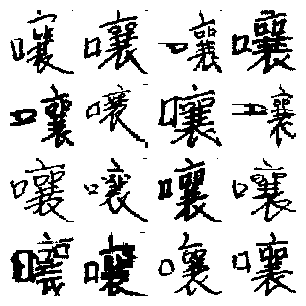 嚷嚷嚷嚷
嚷嚷嚷嚷
嚷嚷嚷嚷
嚷嚷嚷嚷